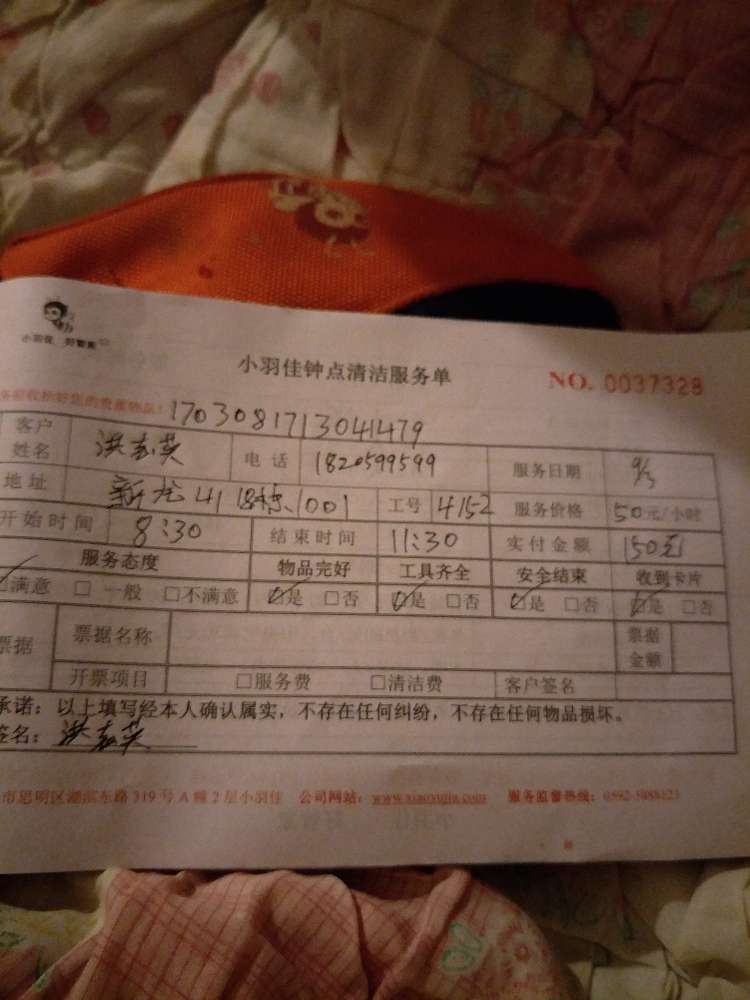 小羽佳 好管家
小羽佳钟点清洁服务单 NO. 0037328
1703081713041479
客户姓名 洪志英 电话 1820599599 服务日期 9/3
地址 新龙41 1001 工号 4152 服务价格 50元/小时
开始时间 8:30 结束时间 11:30 实付金额 150元
服务态度 物品完好 工具齐全 安全结束 收到卡片
满意 □ 一般 □不满意 ☑是 □否 ☑是 □否 ☑是 □否 ☑是 □否
票据 票据名称 票据金额
开票项目 □服务费 □清洁费 客户签名
承诺：以上填写经本人确认属实，不存在任何纠纷，不存在任何物品损坏。
签名：洪志英
市思明区湖滨东路319号A幢2层小羽佳 公司网站：www.xiaoyujia.com 服务监督热线：